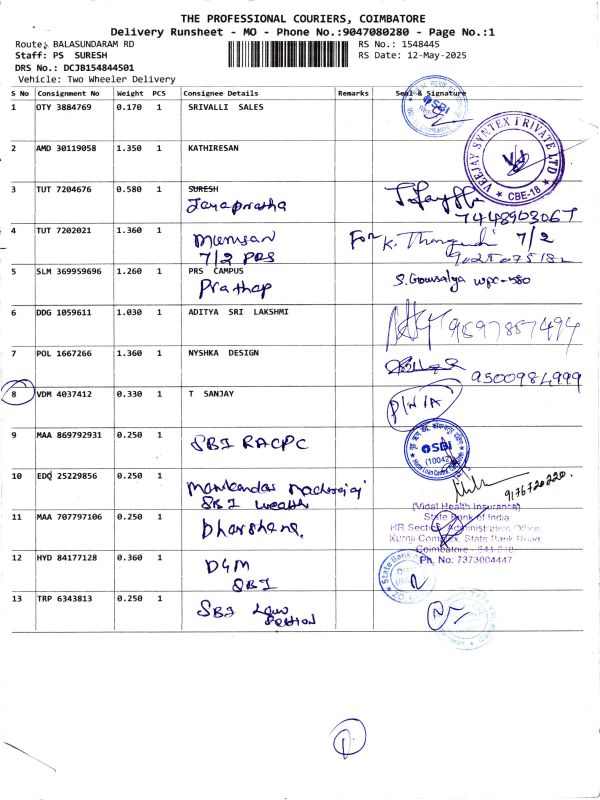 THE PROFESSIONAL COURIERS, COIMBATORE
Delivery Runsheet - MO - Phone No.:9047080280 - Page No.:1
Route: BALASUNDARAM RD RS No.: 1548445
Staff: PS SURESH RS Date: 12-May-2025
DRS No.: DCJB154844501
Vehicle: Two Wheeler Delivery
S No Consignment No Weight PCS Consignee Details Remarks Seal & Signature
1 OTY 3884769 0.170 1 SRIVALLI SALES
SBI
2 AMD 30119058 1.350 1 KATHIRESAN
VEEJAY SYNTEX PRIVATE LTD
CBE-18
3 TUT 7204676 0.580 1 SURESH
Jayapratha
7448903067
4 TUT 7202021 1.360 1 Mumsan For K. 7/2
7/2 PRS
5 SLM 369959696 1.260 1 PRS CAMPUS S. Gowsalya WPC-580
Prathap
6 DDG 1059611 1.030 1 ADITYA SRI LAKSHMI 9597857494
7 POL 1667266 1.360 1 NYSHKA DESIGN
9500984999
8 VDM 4037412 0.330 1 T SANJAY P/N/A
9 MAA 869792931 0.250 1 SBI RACPC
SBI
(10042)
10 EDQ 25229856 0.250 1 Manikandan
SBI Wealth 9176720220
11 MAA 707797106 0.250 1 Dharshana
(Vidal Health Insurance)
State Bank of India
HR Section, Administrative Office
Kurnji Complex, State Bank Road
Coimbatore - 641 018
Ph. No: 7373004447
12 HYD 84177128 0.360 1 DGM
SBI
State Bank
13 TRP 6343813 0.250 1 SBI Law
Section